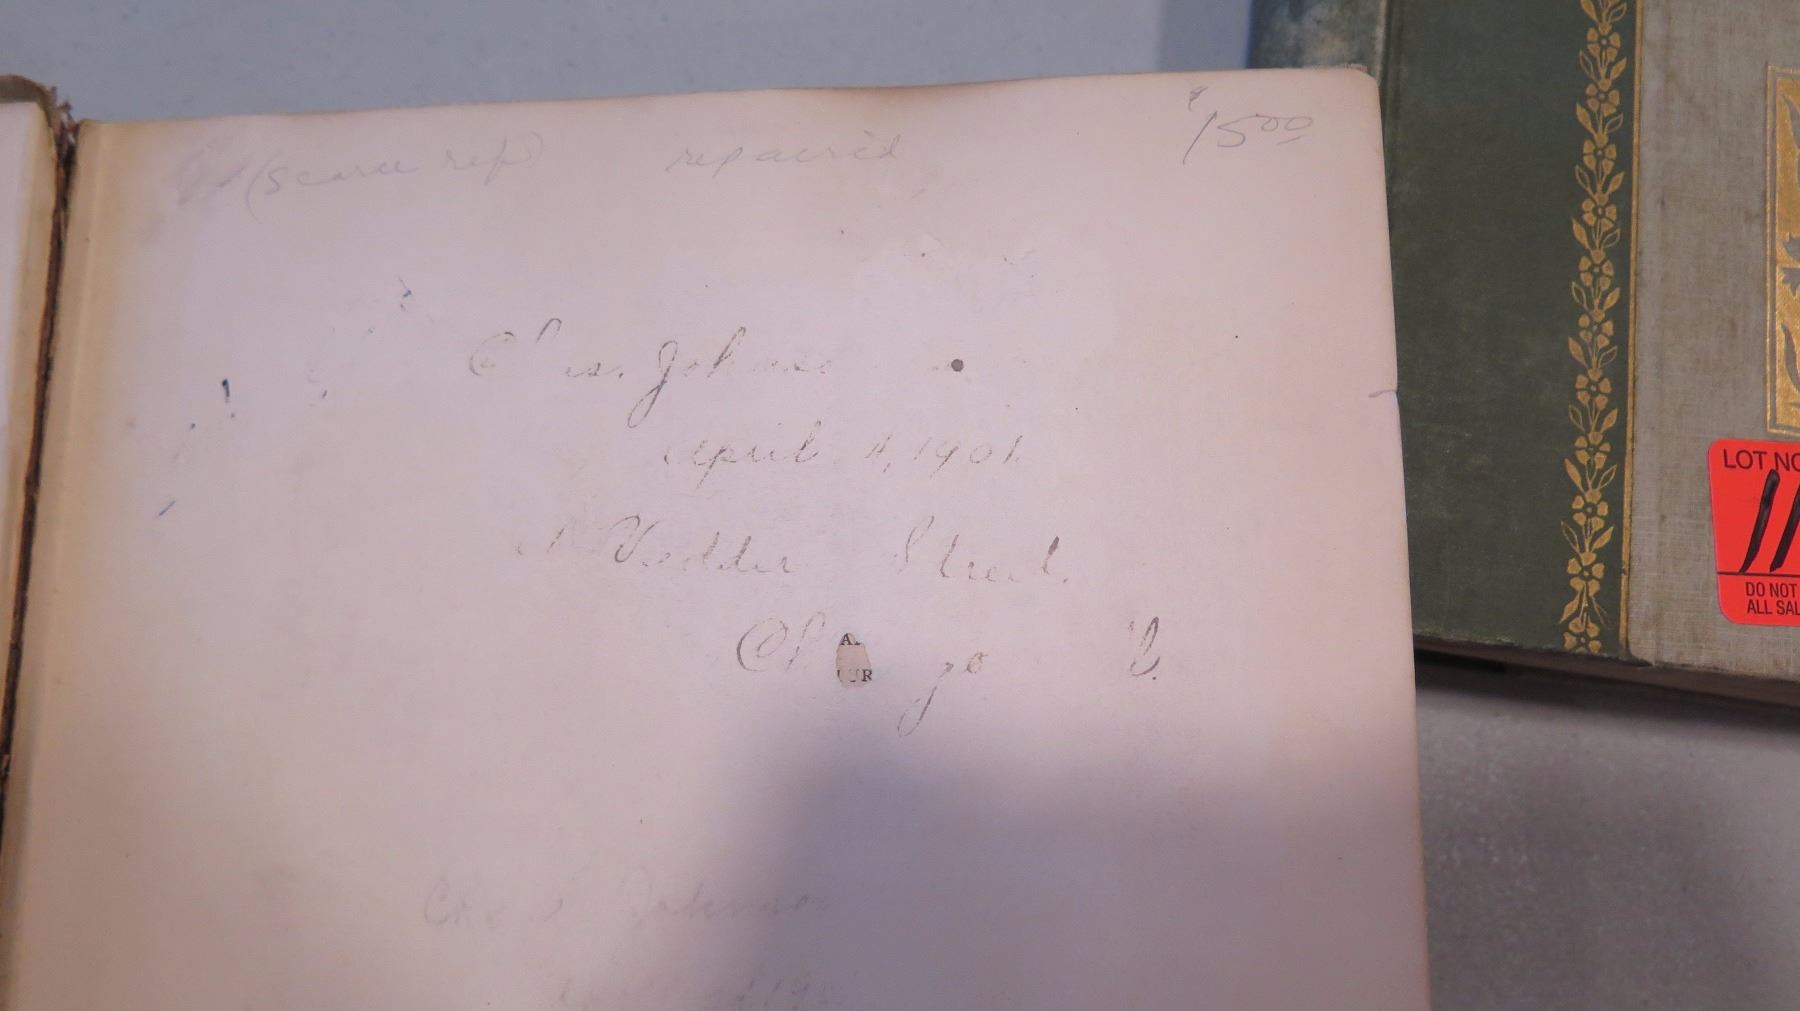 (scarce rep) repaired $1500
Chas. Johnson
April 4, 1901
Vedder Street.
Chicago Ill.
A.
UR
Johnson
LOT NO
11
DO NOT
ALL SAL